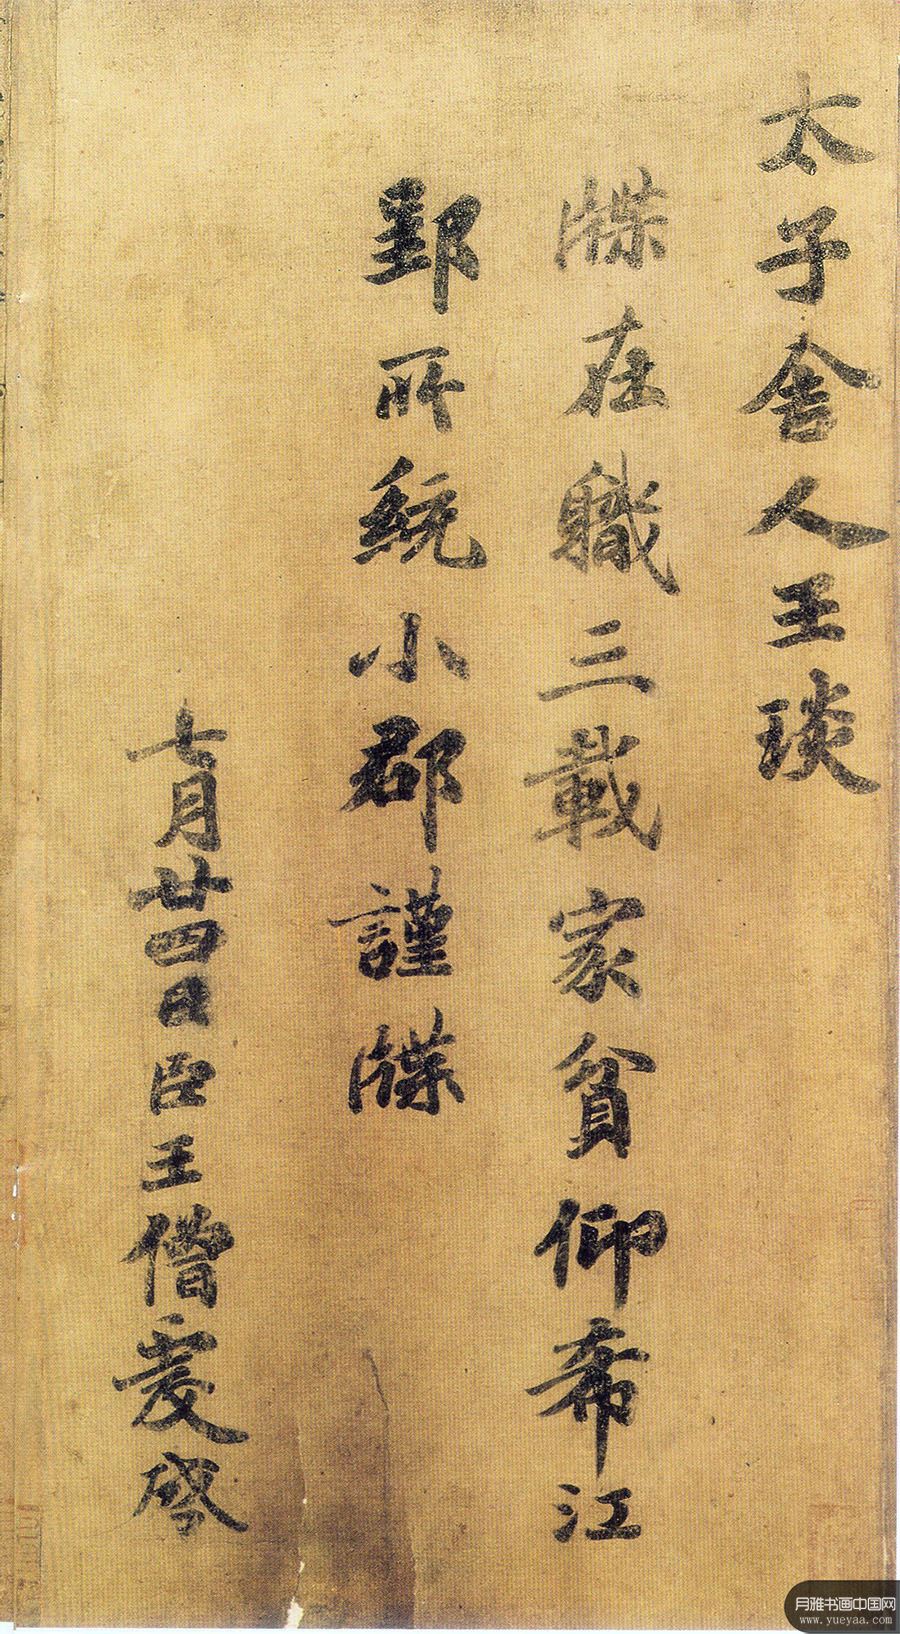 太子舍人王琰
牒在職三載家貧仰希江
郢所統小郡謹牒
七月廿四日臣王僧虔啓
月雅书画中国网
www.yueyaa.com